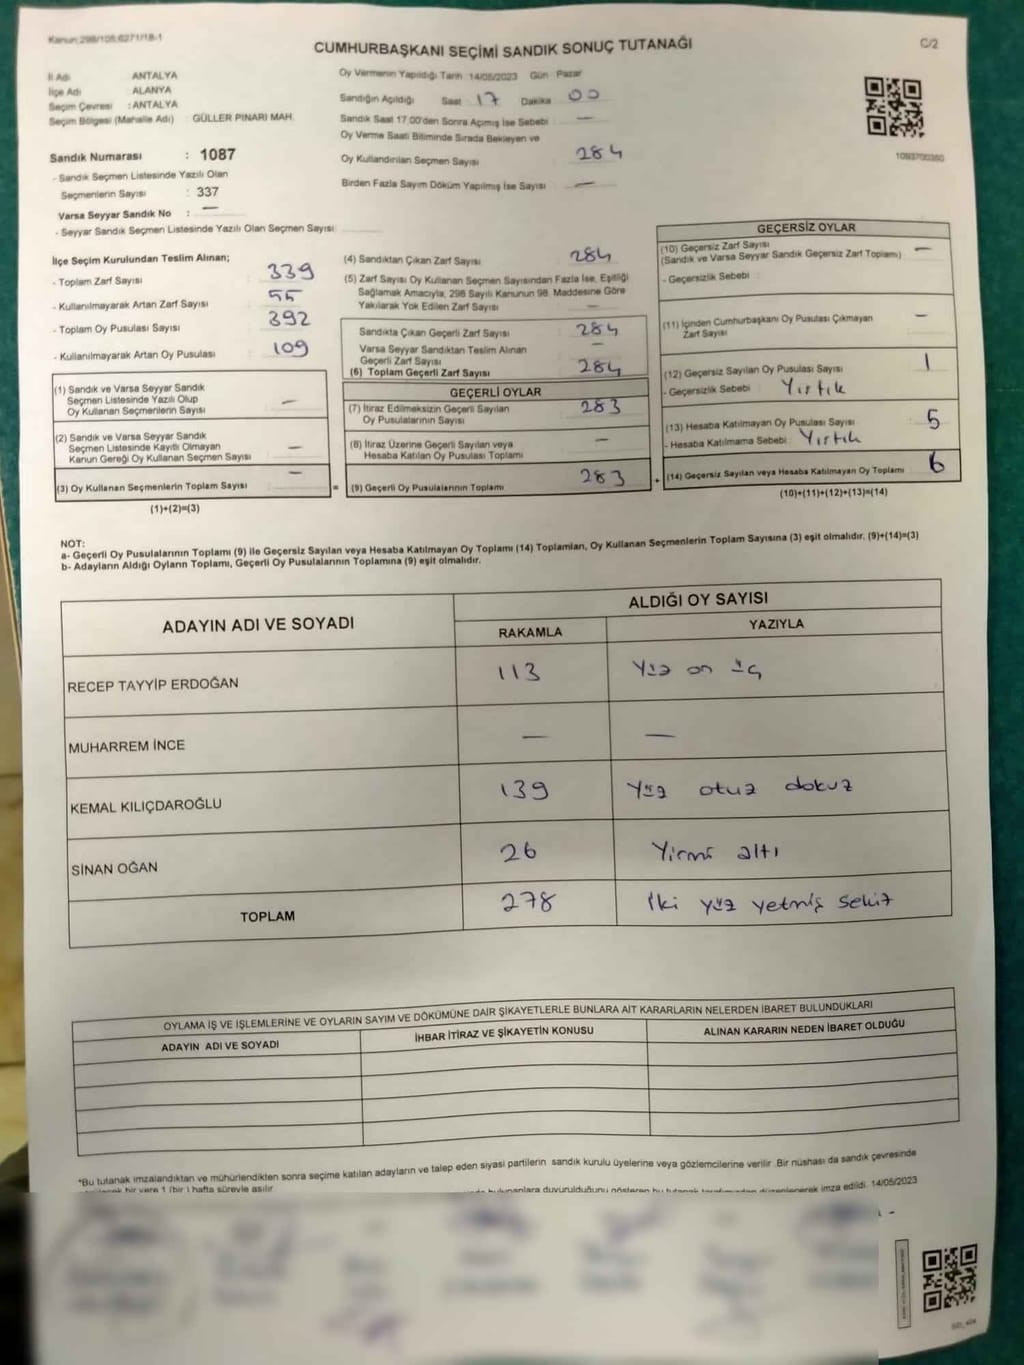 Kanun:298/105;6271/18-1
C/2
CUMHURBAŞKANI SEÇİMİ SANDIK SONUÇ TUTANAĞI
İl Adı ANTALYA
İlçe Adı ALANYA
Seçim Çevresi : ANTALYA
Seçim Bölgesi (Mahalle Adı) GÜLLER PINARI MAH.
Sandık Numarası : 1087
- Sandık Seçmen Listesinde Yazılı Olan
Seçmenlerin Sayısı : 337
Varsa Seyyar Sandık No : —
- Seyyar Sandık Seçmen Listesinde Yazılı Olan Seçmen Sayısı
Oy Vermenin Yapıldığı Tarih 14/05/2023 Gün Pazar
Sandığın Açıldığı Saat 17 Dakika 00
Sandık Saat 17:00'den Sonra Açımış İse Sebebi —
Oy Verme Saati Bitiminde Sırada Bekleyen ve
Oy Kullandırılan Seçmen Sayısı 284
Birden Fazla Sayım Döküm Yapılmış İse Sayısı —
1093700360
İlçe Seçim Kurulundan Teslim Alınan;
- Toplam Zarf Sayısı 339
- Kullanılmayarak Artan Zarf Sayısı 55
- Toplam Oy Pusulası Sayısı 392
- Kullanılmayarak Artan Oy Pusulası 109
(1) Sandık ve Varsa Seyyar Sandık
Seçmen Listesinde Yazılı Olup
Oy Kullanan Seçmenlerin Sayısı —
(2) Sandık ve Varsa Seyyar Sandık
Seçmen Listesinde Kayıtlı Olmayan
Kanun Gereği Oy Kullanan Seçmen Sayısı —
(3) Oy Kullanan Seçmenlerin Toplam Sayısı —
(1)+(2)=(3)
(4) Sandıktan Çıkan Zarf Sayısı 284
(5) Zarf Sayısı Oy Kullanan Seçmen Sayısından Fazla İse, Eşitliği
Sağlamak Amacıyla, 298 Sayılı Kanunun 98. Maddesine Göre
Yakılarak Yok Edilen Zarf Sayısı —
Sandıkta Çıkan Geçerli Zarf Sayısı 284
Varsa Seyyar Sandıktan Teslim Alınan —
Geçerli Zarf Sayısı
(6) Toplam Geçerli Zarf Sayısı 284
GEÇERLİ OYLAR
(7) İtiraz Edilmeksizin Geçerli Sayılan
Oy Pusulalarının Sayısı 283
(8) İtiraz Üzerine Geçerli Sayılan veya
Hesaba Katılan Oy Pusulası Toplamı —
= (9) Geçerli Oy Pusulalarının Toplamı 283
GEÇERSİZ OYLAR
(10) Geçersiz Zarf Sayısı —
(Sandık ve Varsa Seyyar Sandık Geçersiz Zarf Toplamı)
- Geçersizlik Sebebi
(11) İçinden Cumhurbaşkanı Oy Pusulası Çıkmayan —
Zarf Sayısı
(12) Geçersiz Sayılan Oy Pusulası Sayısı 1
- Geçersizlik Sebebi Yırtık
(13) Hesaba Katılmayan Oy Pusulası Sayısı 5
- Hesaba Katılmama Sebebi Yırtık
+ (14) Geçersiz Sayılan veya Hesaba Katılmayan Oy Toplamı 6
(10)+(11)+(12)+(13)=(14)
NOT:
a- Geçerli Oy Pusulalarının Toplamı (9) ile Geçersiz Sayılan veya Hesaba Katılmayan Oy Toplamı (14) Toplamları, Oy Kullanan Seçmenlerin Toplam Sayısına (3) eşit olmalıdır. (9)+(14)=(3)
b- Adayların Aldığı Oyların Toplamı, Geçerli Oy Pusulalarının Toplamına (9) eşit olmalıdır.
ADAYIN ADI VE SOYADI
ALDIĞI OY SAYISI
RAKAMLA YAZIYLA
RECEP TAYYİP ERDOĞAN 113 Yüz on üç
MUHARREM İNCE — —
KEMAL KILIÇDAROĞLU 139 Yüz otuz dokuz
SİNAN OĞAN 26 Yirmi altı
TOPLAM 278 iki yüz yetmiş sekiz
OYLAMA İŞ VE İŞLEMLERİNE VE OYLARIN SAYIM VE DÖKÜMÜNE DAİR ŞİKAYETLERLE BUNLARA AİT KARARLARIN NELERDEN İBARET BULUNDUKLARI
ADAYIN ADI VE SOYADI İHBAR İTİRAZ VE ŞİKAYETİN KONUSU ALINAN KARARIN NEDEN İBARET OLDUĞU
*Bu tutanak imzalandıktan ve mühürlendikten sonra seçime katılan adayların ve talep eden siyasi partilerin sandık kurulu üyelerine veya gözlemcilerine verilir. Bir nüshası da sandık çevresinde
bir yere 1 (bir) hafta süreyle asılır. duyurulduğunu gösteren bu tutanak tarafımızdan düzenlenerek imza edildi. 14/05/2023